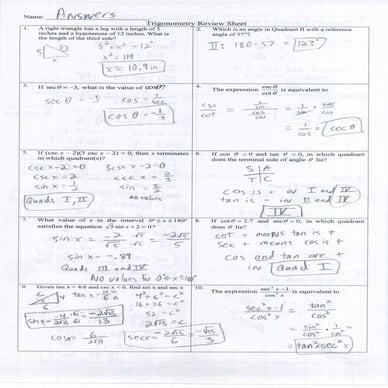 Name: Answers
Trigonometry Review Sheet
1. A right triangle has a leg with a length of 5
inches and a hypotenuse of 12 inches. What is
the length of the third side?
5 12
5² + x² = 12²
x² = 119
x ≈ 10.9 in
2. Which is an angle in Quadrant II with a reference
angle of 57°?
II: 180 - 57 = 123°
3. If sec θ = -3, what is the value of cos θ?
sec θ = -3 cos = 1/sec
cos θ = -1/3
4. The expression csc θ / cot θ is equivalent to
csc / cot = (1/sin) / (cos/sin) = 1/sin · sin/cos
= 1/cos = sec θ
5. If (csc x - 2)(3 csc x - 2) = 0, then x terminates
in which quadrant(s)?
csc x - 2 = 0 3csc x - 2 = 0
csc x = 2 csc x = 2/3
sin x = 1/2 sin = 3/2
Quads I, II No values
6. If cos θ > 0 and tan θ < 0, in which quadrant
does the terminal side of angle θ lie?
S | A
T | C
cos is + in I and IV
tan is - in II and IV
IV
7. What value of x in the interval 0° ≤ x ≤ 180°
satisfies the equation √5 sin x + 2 = 0?
sin x = -2/√5 · √5/√5 = -2√5/5
sin x = -.89
Quads III and IV
No values for 0° ≤ x ≤ 180°
8. If cot θ = 2.7 and sec θ > 0, in which quadrant
does θ lie?
cot + means tan is +
sec + means cos is +
cos and tan are +
in Quad I
9. Given tan x = 4/6 and csc x < 0, find sin x and sec x
tan x = 4/6
4² + 6² = c²
16 + 36 = c²
52 = c²
2√13 = c
10. The expression (sec² x - 1) / cos² x is equivalent to
sec² x - 1 / cos² x = tan² / cos²
= sin²/cos² · 1/cos² =
tan² x sec² x